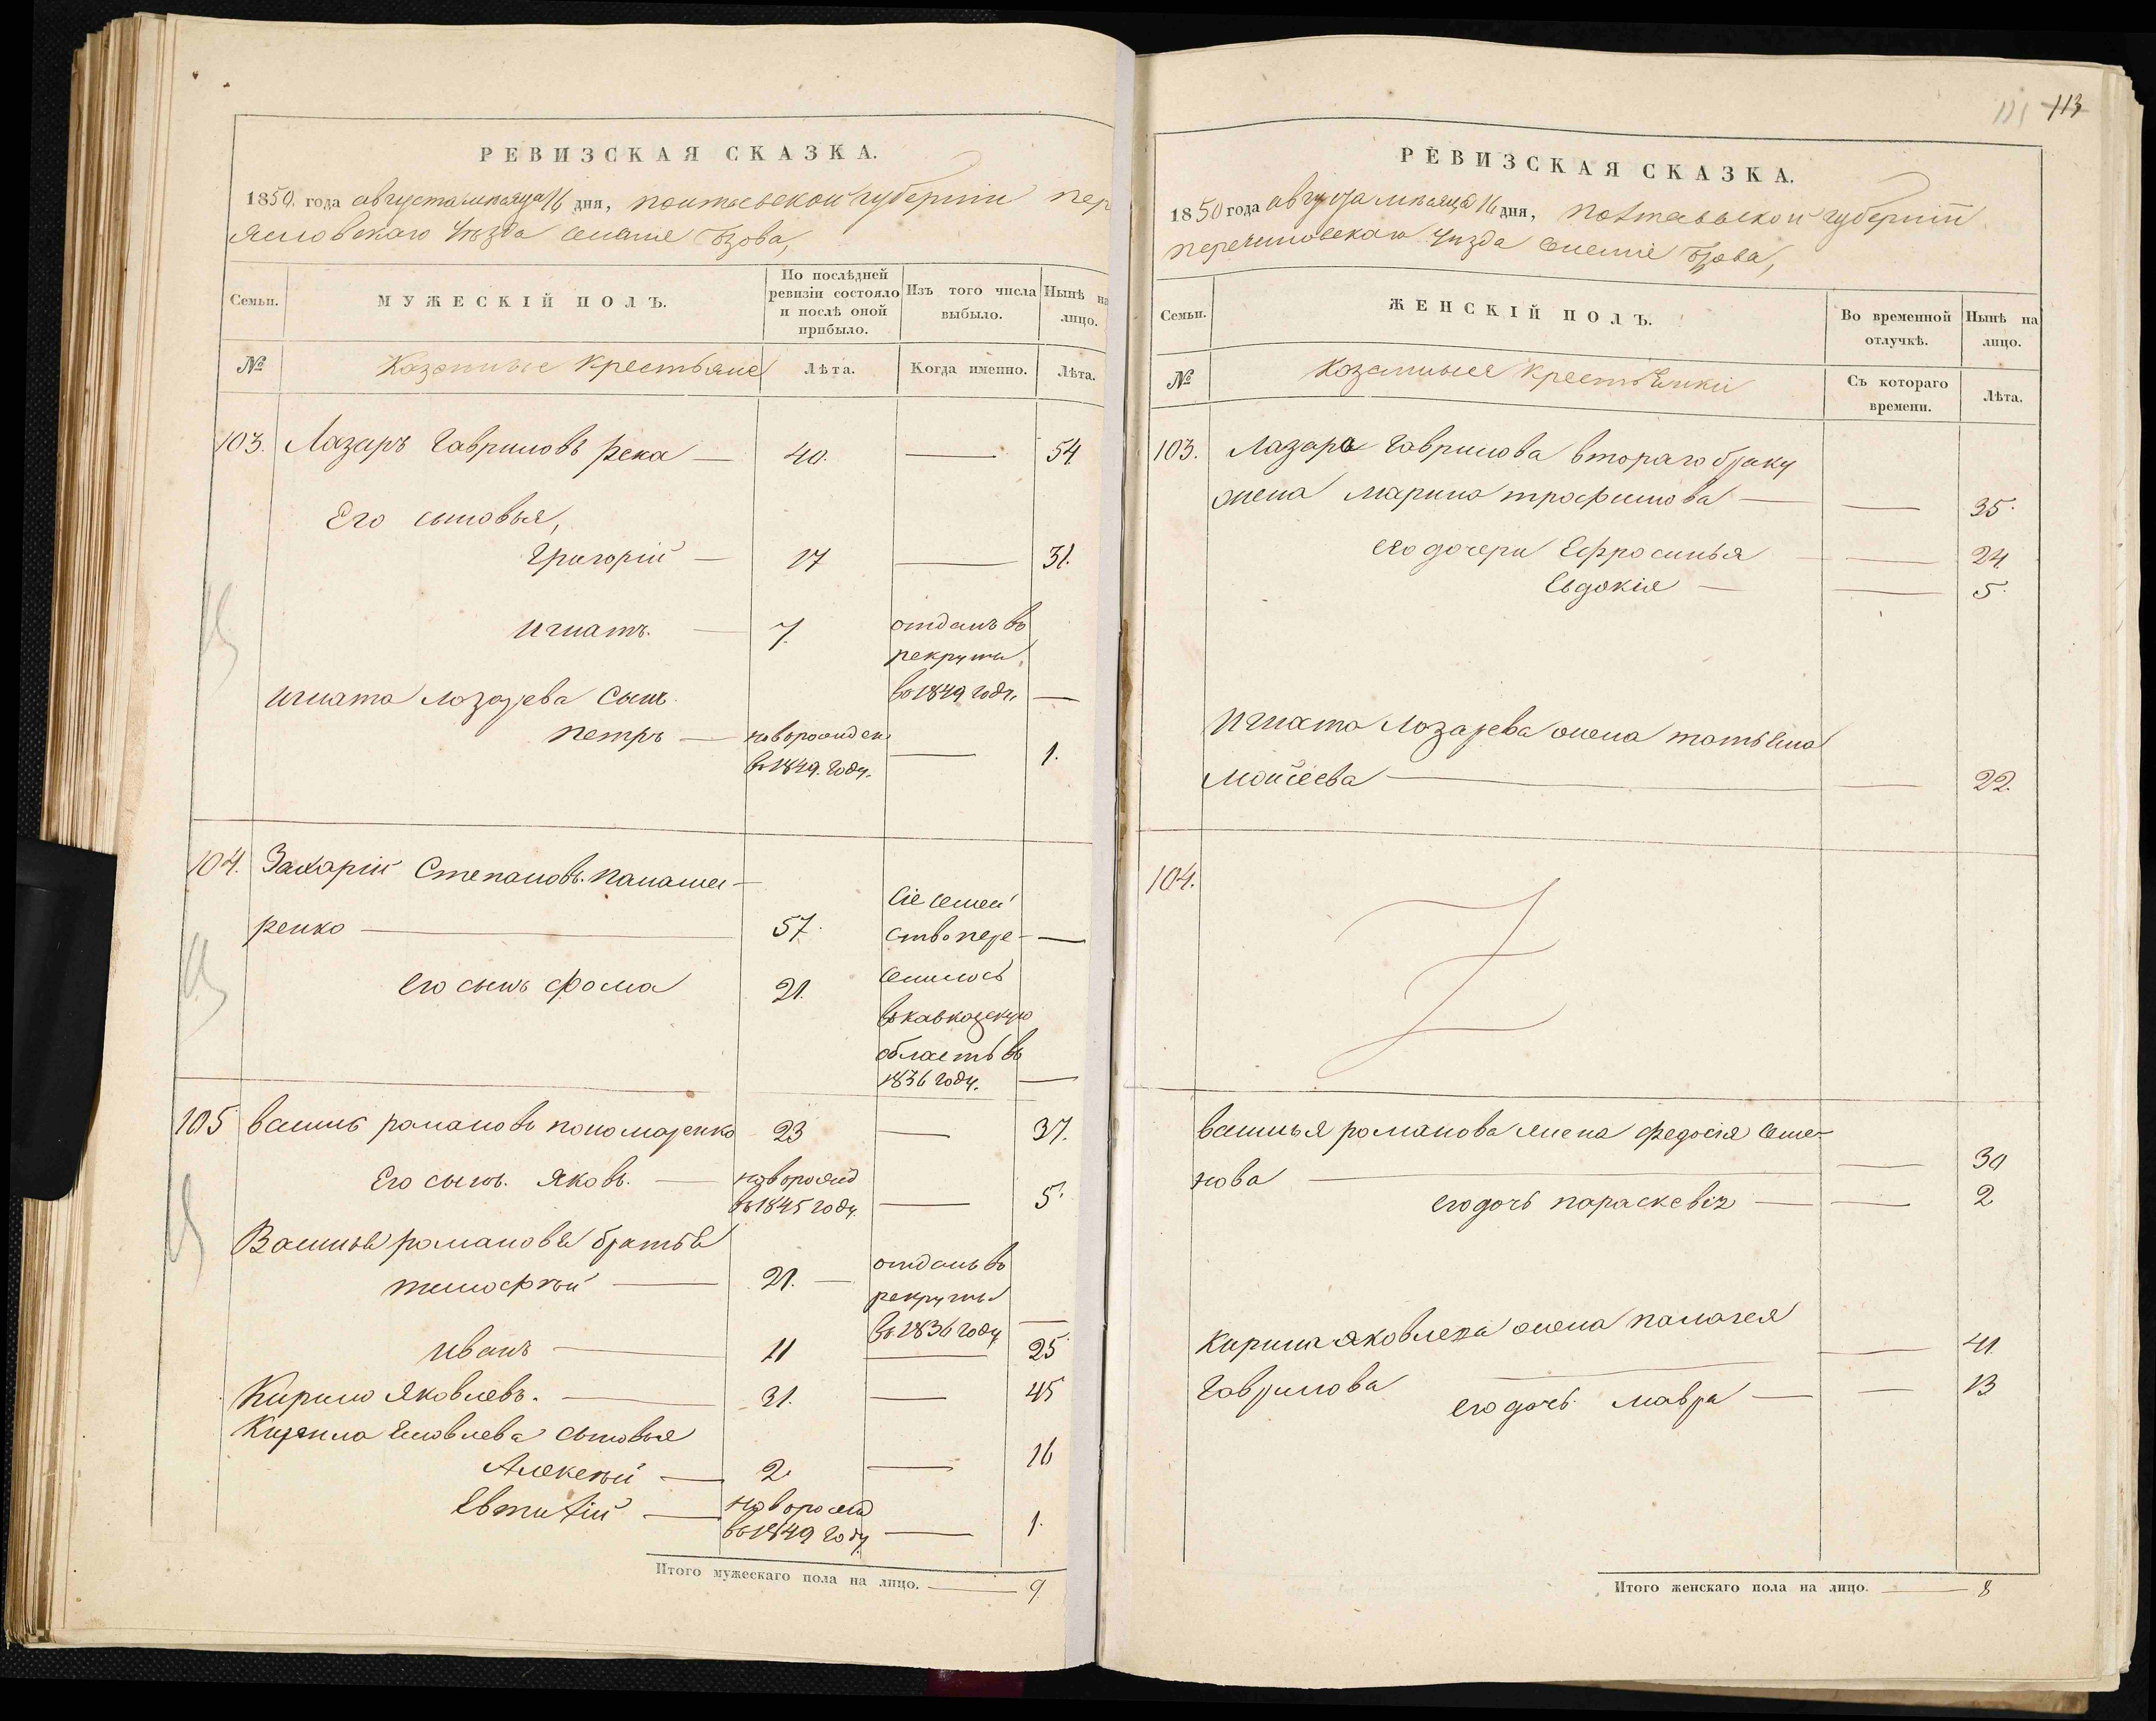 РЕВИЗСКАЯ СКАЗКА.
1850. года августа месяца 16 дня, полтавской губерніи пер
яславскаго уѣзда селенія Бзова,
Семьи.
МУЖЕСКІЙ ПОЛЪ.
По послѣдней ревизіи состояло и послѣ оной прибыло.
Изъ того числа выбыло.
Нынѣ на лицо.
№
Казенные крестьяне
Лѣта.
Когда именно.
Лѣта.
103. Лазаръ Гавриловъ Река — 40. — 54
Его сыновья,
Григорій — 17 — 31.
Игнатъ. — 7. отданъ въ
рекруты
въ 1849 году. —
Игната Лазарева Сынъ.
Петръ — новорожден
въ 1849. году. — 1.
104. Захарій Степановъ. Панаше-
ренко — 57. Сіе семей
ство пере- —
его сынъ фома 21. селилось
въ кавказскую
область въ
1836 году. —
105 василь романовъ пономаренко 23 — 37.
Его сынъ. Яковъ. — новорожд
въ 1845 году. — 5.
Василья романова братья
тимофѣй — 21. — отданъ въ
рекруты
въ 1836 году —
иванъ — 11 — 25
Кирило Яковлевъ. — 31. — 45
Кирила Яковлева сыновья
Алексѣй — 2. — 16
Евтихій — новорожд
въ 1849 году — 1.
Итого мужескаго пола на лицо. — 9.
111 113
РЕВИЗСКАЯ СКАЗКА.
1850 года августа месяца 16 дня, полтавской губерніи
переясловскаго уѣзда селеніе Бзова,
Семьи.
ЖЕНСКІЙ ПОЛЪ.
Во временной отлучкѣ.
Нынѣ на лицо.
№
Козенныя Крестьянки
Съ котораго времени.
Лѣта.
103. Лазара Гаврилова втораго браку
жена Марина трофимова — — 35.
его дочери Ефросинья — — 24.
Евдокія — — 5.
Игната Лозарева жена татьяна
Моисеева — — 22.
104.
василья романова жена федосія Семе-
нова — — 30
его дочь параскевія — — 2
Кирила яковлева жена палагея
— 41.
Гаврилова —
его дочь мавра — — 13
Итого женскаго пола на лицо. — 8